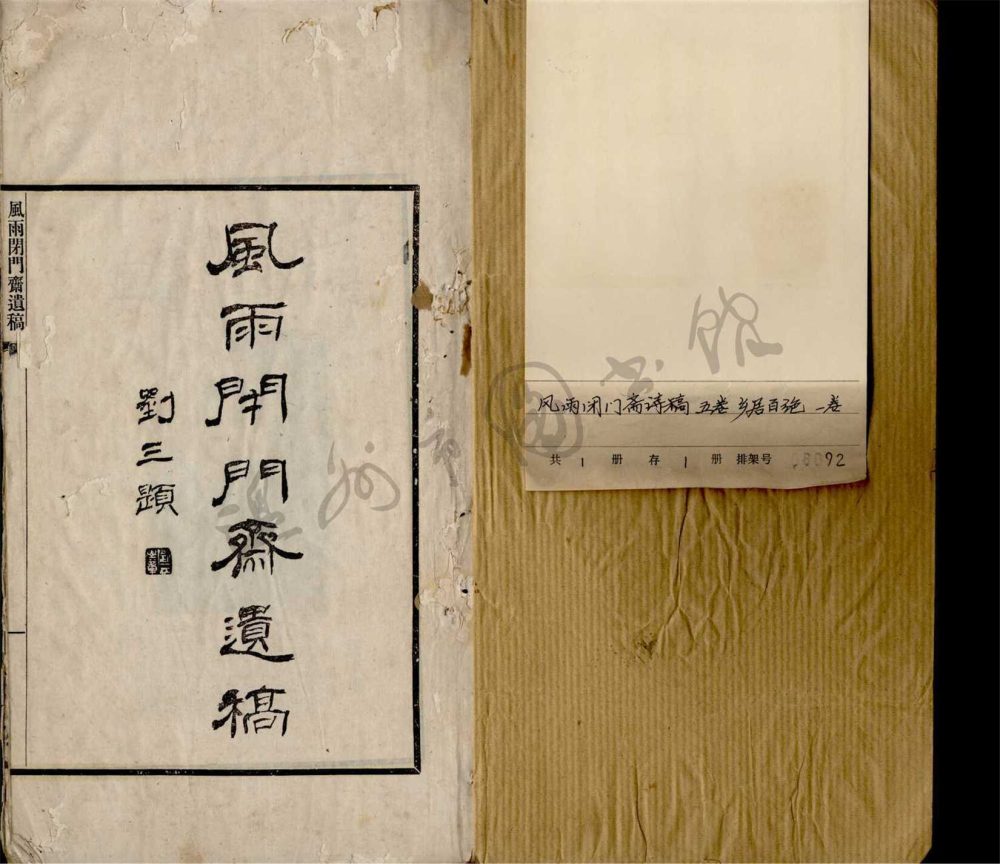 风雨闭门斋诗稿 五卷 乡居百绝 一卷
共 1 册 存 1 册 排架号 92
風雨閉門齋遺稿
劉三題
風雨閉門齋遺稿